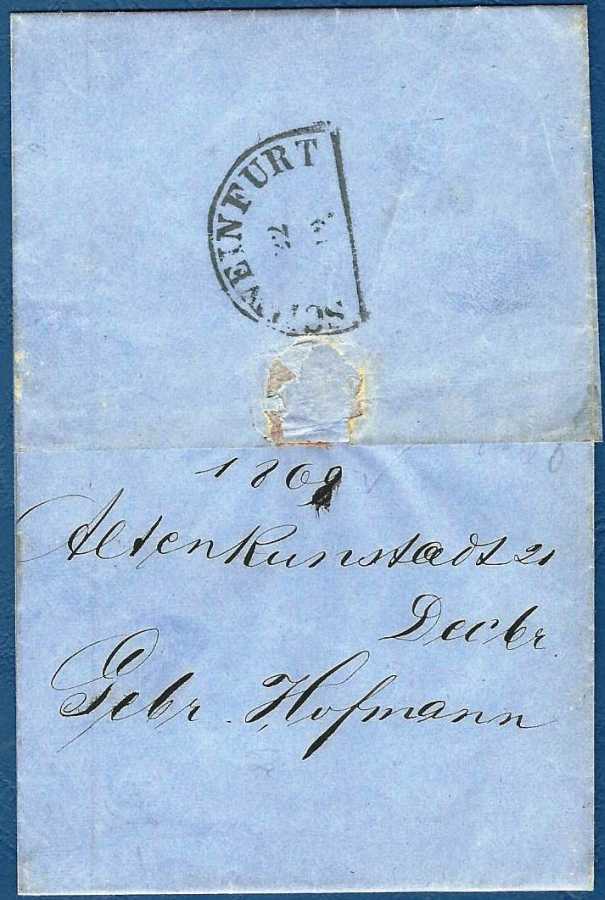 SCHWEINFURT
22
12
Altenkunstadt 21
Decbr.
Gebr. Hofmann